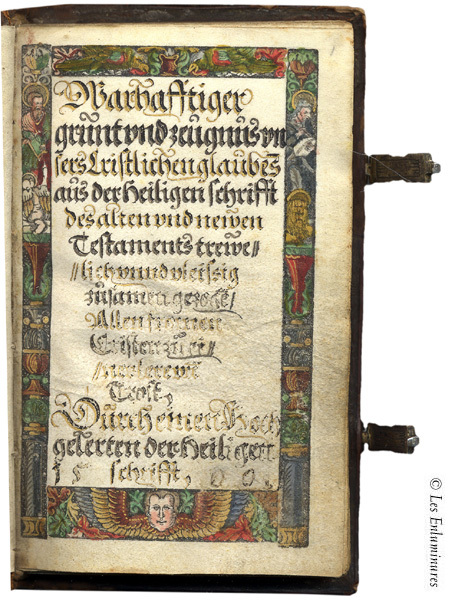 Warhafftiger
grünt vnd zeügnüs vn
sers Cristlichen glaubēs
aüs der Heiligen schrifft
des alten vnd newen
Testaments trewe//
//lich vnnd vleissig
züsamen
Allen fromen
Cristen zü ei//
//
Trost,
Dürch einen Hoch
gelerten der Heiligen
15 schrifft, 
© Les Enluminures